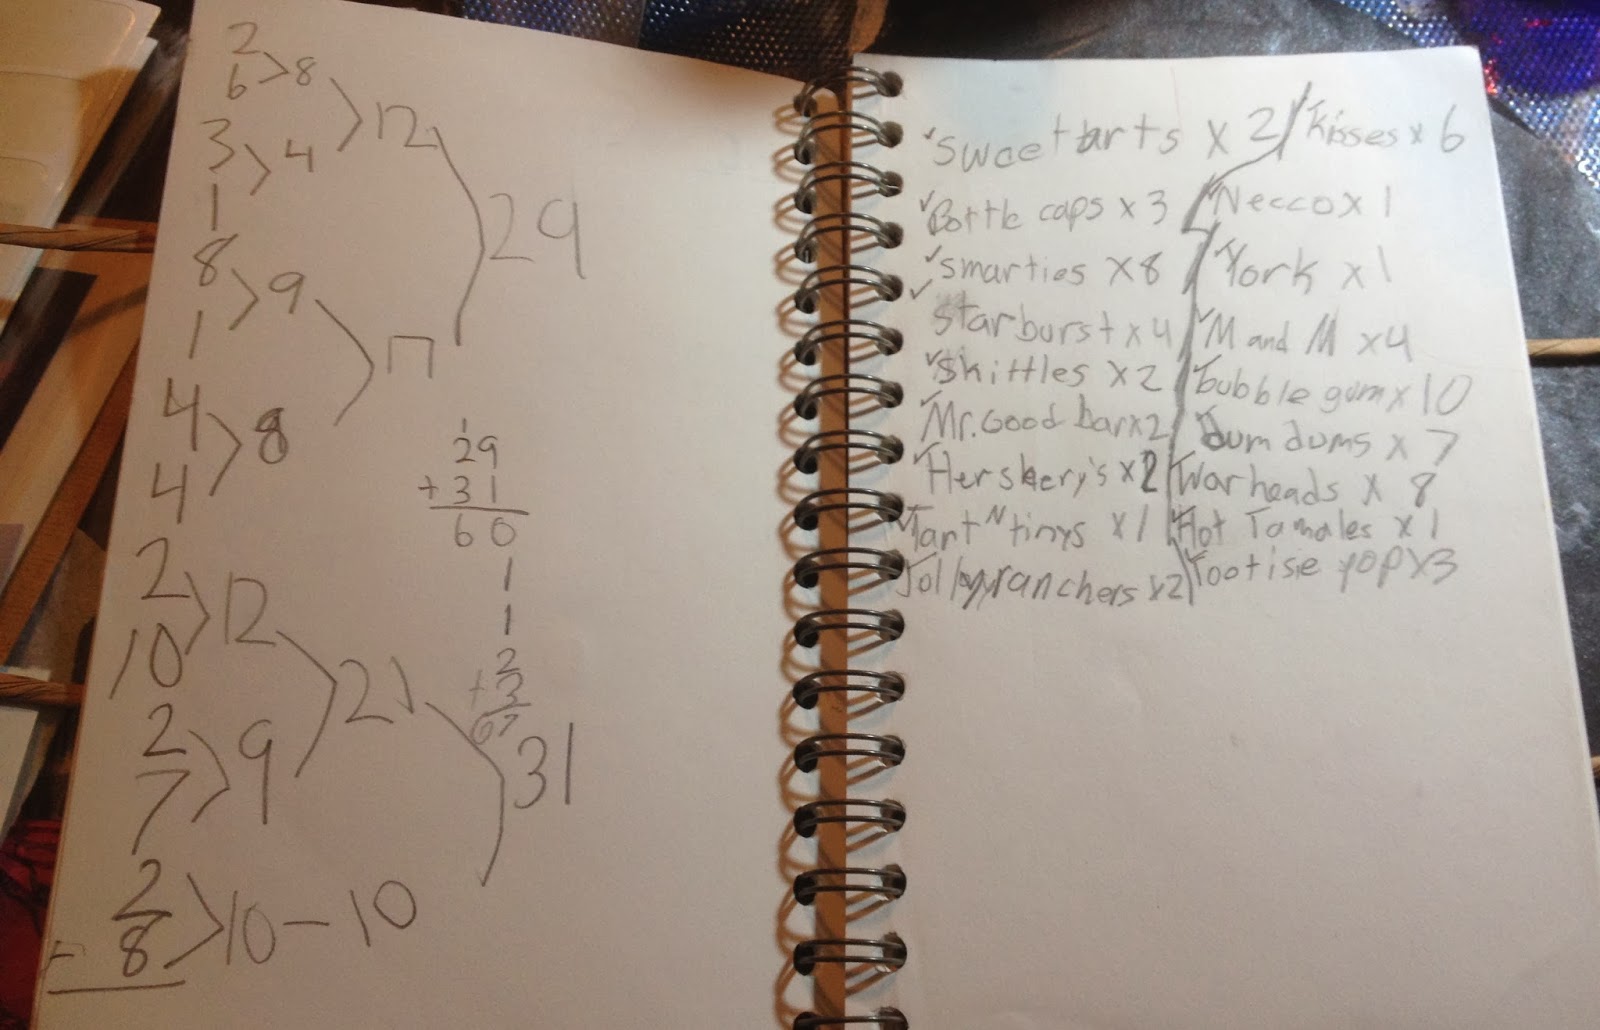 2
6 > 8
12
3
1 > 4
29
8
1 > 9
17
4
4 > 8
1
29
+ 31
60
2
10 > 12
21
2
7 > 9
31
1
1
+ 2
3
67
2
- 8 > 10 - 10
✓Sweet tarts x 2 / ✓Kisses x 6
✓Bottle caps x 3 / ✓Necco x 1
✓smarties x 8 / ✓York x 1
✓Starburst x 4 / ✓M and M x 4
✓Skittles x 2 / ✓bubble gum x 10
✓Mr. Good bar x 2 / ✓Dum dums x 7
✓Hershery's x 2 / ✓Warheads x 8
✓Tart N tinys x 1 / ✓Hot Tamales x 1
✓Jollyranchers x 2 / ✓Tootisie pop x 3